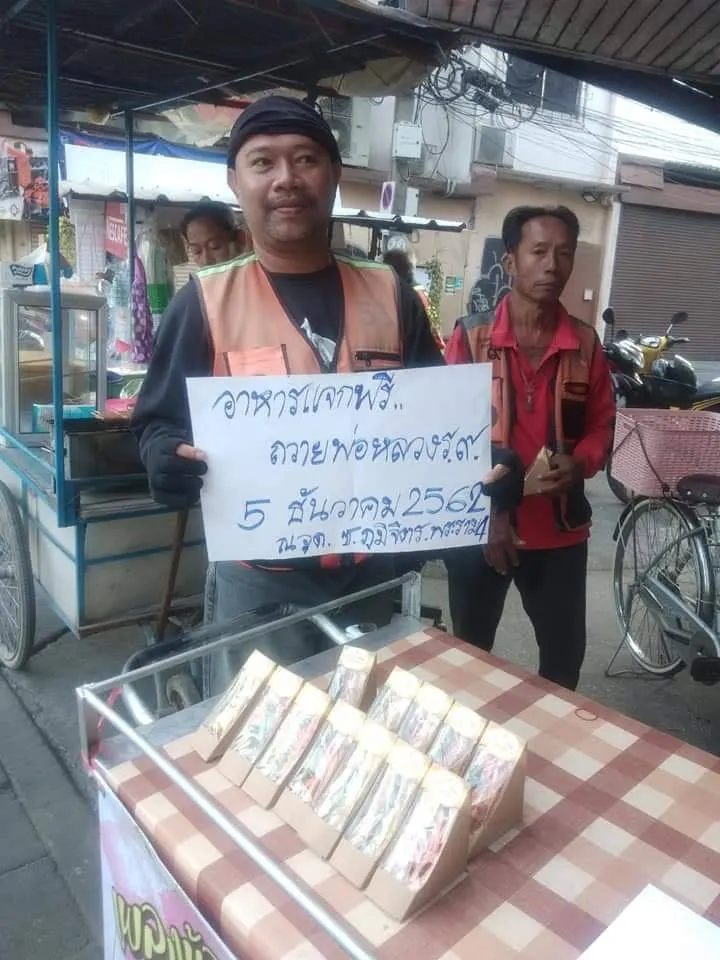 อาหารแจกฟรี..
ถวายพ่อหลวงร.๙.
5 ธันวาคม 2562
ณจุด. ซ.ภูมิจิตร.พระราม4
NESCAFÉ